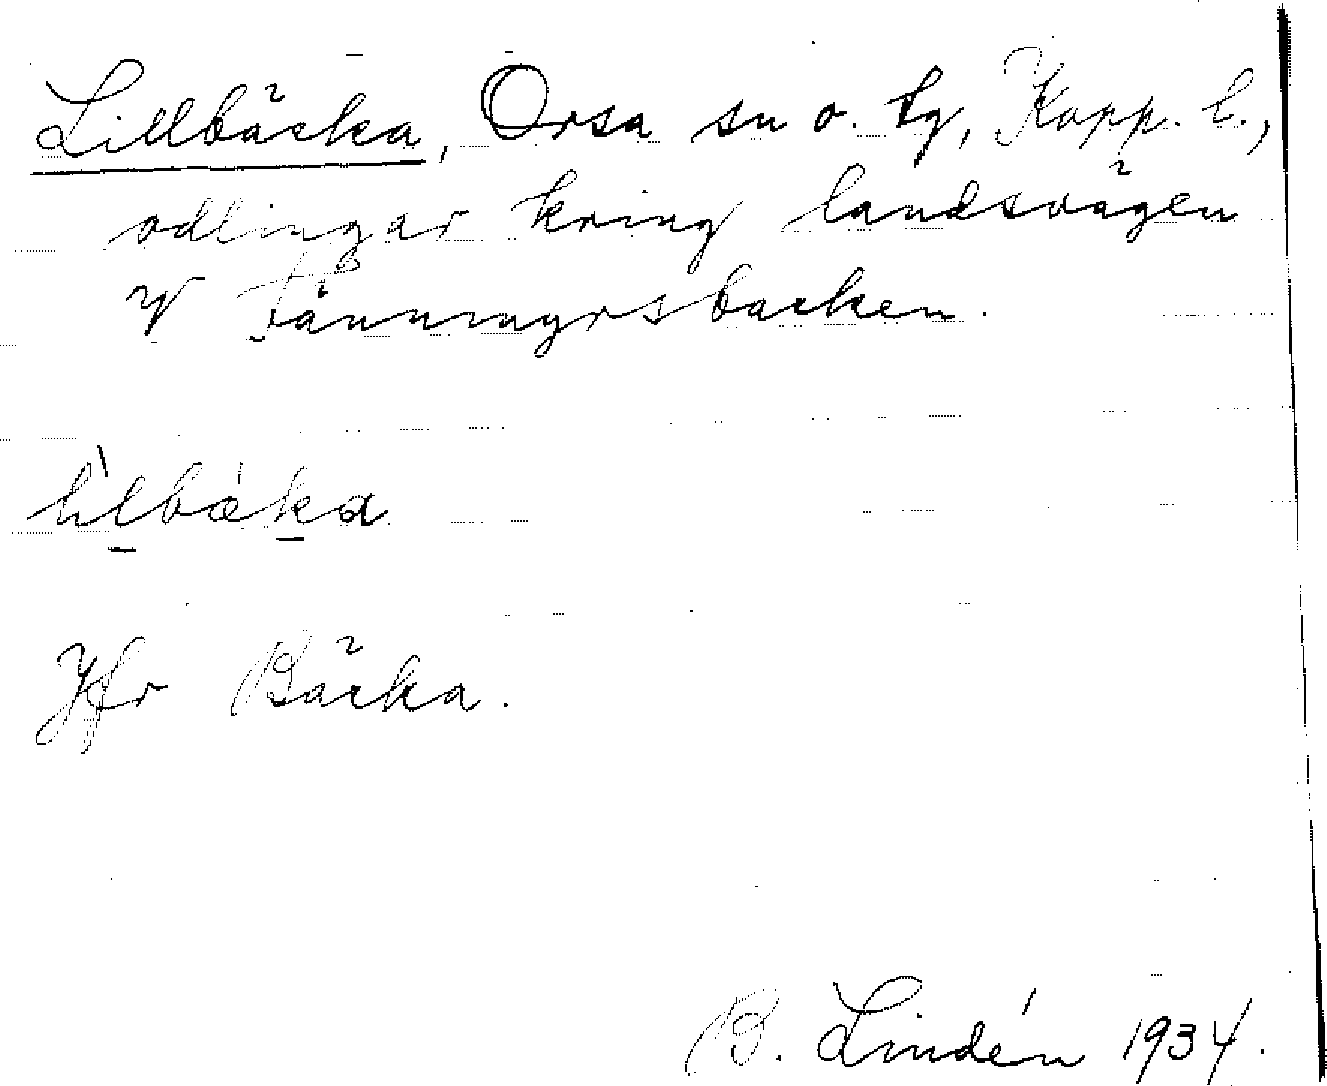 Lillbäcka, Orsa sn o. tg, Kopp. l.,
odlingar kring landsvägen
V Tånnmyrsbacken.
lìlbáka
Jfr Bäcka.
B. Lindén 1934.